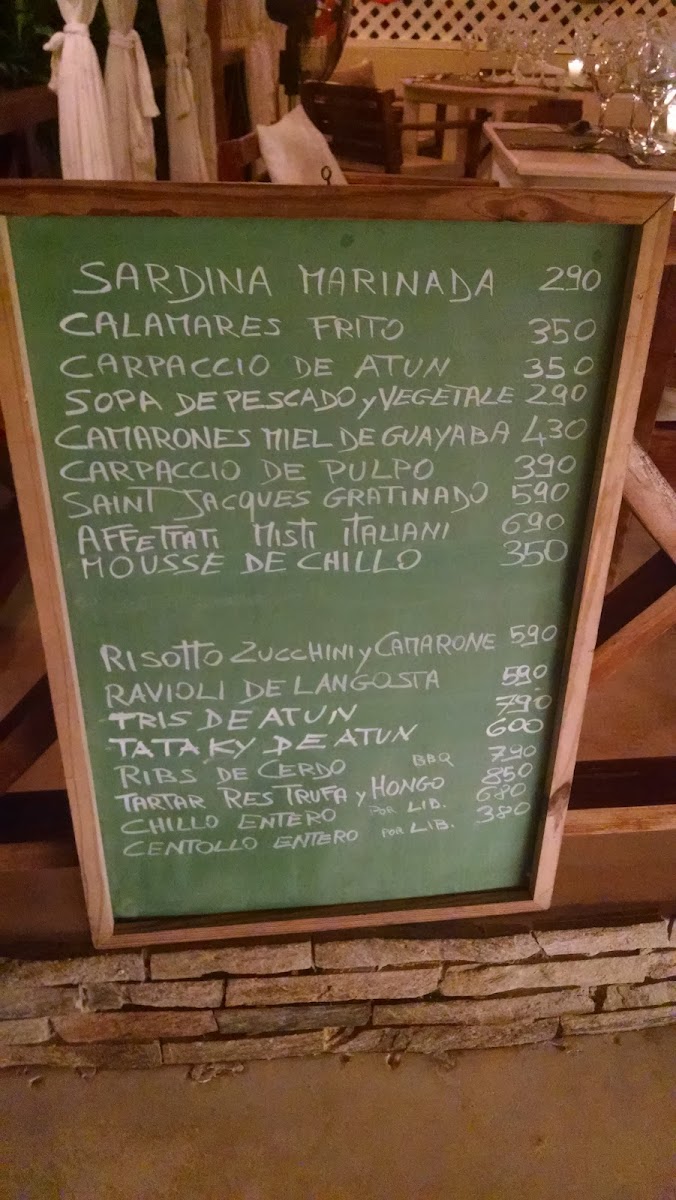 SARDINA MARINADA 290
CALAMARES FRITO 350
CARPACCIO DE ATUN 350
SOPA DE PESCADO y VEGETALE 290
CAMARONES MIEL DE GUAYABA 430
CARPACCIO DE PULPO 390
SAINT JACQUES GRATINADO 590
AFFETTATI MISTI ITALIANI 690
MOUSSE DE CHILLO 350
RISOTTO ZUCCHINI y CAMARONE 590
RAVIOLI DE LANGOSTA 590
TRIS DE ATUN 790
TATAKY DE ATUN 600
RIBS DE CERDO BBQ 790
TARTAR RES TRUFA y HONGO 850
CHILLO ENTERO POR LIB. 680
CENTOLLO ENTERO POR LIB. 380